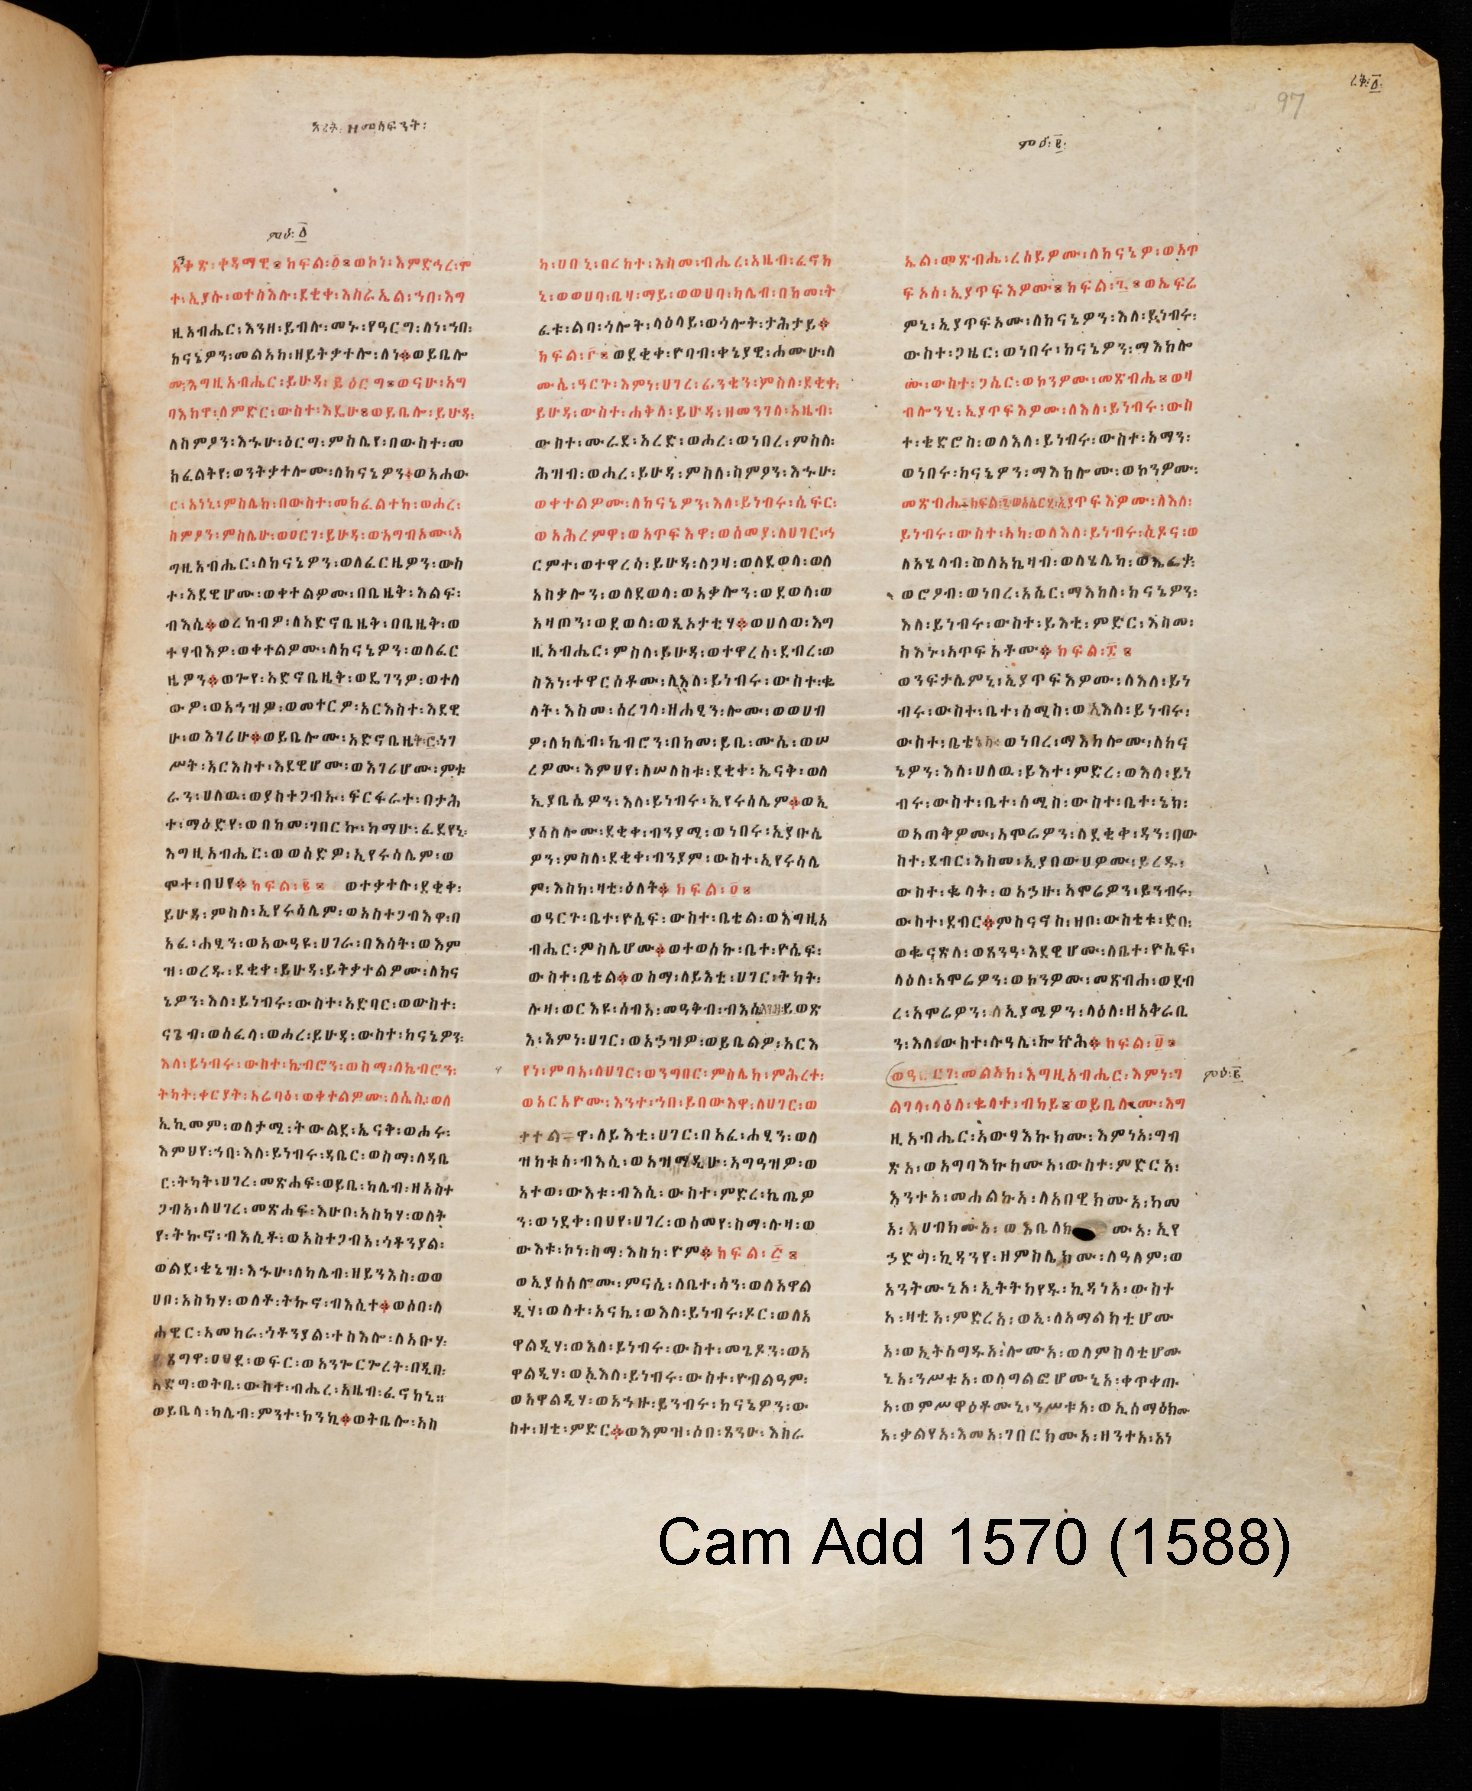 ኦሪት፡ ዘመሳፍንት፡
97
ምዕ፡ ፩
ምዕ፡ ፪፡
አቀጽ፡ ቀዳማዊ፡ ክፍል፡ ፩ ወኮነ፡ እምድኅረ፡ ሞ
ተ፡ ኢያሱ፡ ወተስእሉ፡ ደቂቀ፡ እስራኤል፡ ኀበ፡ እግ
ዚአብሔር፡ እንዘ፡ ይብሉ፡ መኑ፡ የዓርግ፡ ለነ፡ ኀበ፡
ከናኔዎን፡ መልአክ፡ ዘይትቃተሎ፡ ለነ ወይቤሎ
ሙ፡ እግዚአብሔር፡ ይሁዳ፡ ይዕርግ ወናሁ፡ አግ
ባእክዋ፡ ለምድር፡ ውስተ፡ እዴሁ ወይቤሎ፡ ይሁዳ፡
ለስምዖን፡ እኁሁ፡ ዕርግ፡ ምስሌየ፡ በውስተ፡ መ
ክፈልትየ፡ ወንትቃተሎሙ፡ ለከናኔዎን ወአሐው
ር፡ አነኒ፡ ምስሌከ፡ በውስተ፡ መክፈልተከ፡ ወሖረ፡
ስምዖን፡ ምስሌሁ፡ ወዐርገ፡ ይሁዳ፡ ወአግብኦሙ፡ እ
ግዚአብሔር፡ ለከናኔዎን፡ ወለፈርዜዎን፡ ውስ
ተ፡ እደዊሆሙ፡ ወቀተልዎሙ፡ በቤዜቅ፡ እልፍ፡
ብእሲ ወረከብዎ፡ ለአድኖቤዜቅ፡ በቤዜቅ፡ ወ
ተቃብእዎ፡ ወቀተልዎሙ፡ ለከናኔዎን፡ ወለፈር
ዜዎን ወጐየ፡ አድኖቤዜቅ፡ ወዴገንዎ፡ ወተለ
ውዎ፡ ወአኀዝዎ፡ ወመተርዎ፡ አርእስተ፡ እደዊ
ሁ፡ ወእገሪሁ ወይቤሎሙ፡ አድኖቤዜቅ፡ ነገ
ሥት፡ አርእስተ፡ እደዊሆሙ፡ ወእገሪሆሙ፡ ምቱ
ራን፡ ሀለዉ፡ ወያስተጋብኡ፡ ፍርፋራተ፡ በታሕ
ተ፡ ማዕድየ፡ ወበከመ፡ ገበርኩ፡ ከማሁ፡ ፈደየኒ፡
እግዚአብሔር፡ ወወሰድዎ፡ ኢየሩሳሌም፡ ወ
ሞተ፡ በህየ ክፍል፡ ፪ ወተቃተሉ፡ ደቂቀ፡
ይሁዳ፡ ምስለ፡ ኢየሩሳሌም፡ ወአስተጋብእዋ፡ በ
አፈ፡ ሐፂን፡ ወአውዓዩ፡ ሀገራ፡ በእሳት፡ ወእም
ዝ፡ ወረዱ፡ ደቂቀ፡ ይሁዳ፡ ይትቃተልዎሙ፡ ለከና
ኔዎን፡ እለ፡ ይነብሩ፡ ውስተ፡ አድባር፡ ወውስተ፡
ናጌብ፡ ወሰፈላ፡ ወሖረ፡ ይሁዳ፡ ውስተ፡ ከናኔዎን፡
እለ፡ ይነብሩ፡ ውስተ፡ ኬብሮን፡ ወስማ፡ ለኬብሮን፡
ትካት፡ ቀርያት፡ አሬባዕ፡ ወቀተልዎሙ፡ ለሴሲ፡ ወለ
ኢኪመም፡ ወለታሚ፡ ትውልደ፡ ኤናቅ፡ ወሖሩ፡
እምህየ፡ ኀበ፡ እለ፡ ይነብሩ፡ ዳቤር፡ ወስማ፡ ለዳቤ
ር፡ ትካት፡ ሀገረ፡ መጽሐፍ፡ ወይቤ፡ ካሌብ፡ ዘአስተ
ጋብአ፡ ለሀገረ፡ መጽሐፍ፡ እሁቦ፡ አስካሃ፡ ወለት
የ፡ ትኩኖ፡ ብእሲቶ፡ ወአስተጋብአ፡ ጎቶንያል፡
ወልደ፡ ቄኔዝ፡ እኁሁ፡ ለካሌብ፡ ዘይንእስ፡ ወወ
ሀቦ፡ አስካሃ፡ ወለቶ፡ ትኩኖ፡ ብእሲተ ወሶበ፡ ለ
ሐዊር፡ አመከራ፡ ጎቶንያል፡ ተስእሎ፡ ለአቡሃ፡
ወይቤላ፡ ካሌብ፡ ምንተ፡ ኮንኪ ወትቤሎ፡ አስ
ካ፡ ሀበኒ፡ በረከተ፡ እስመ፡ ብሔረ፡ አዜብ፡ ፈኖከ
ኒ፡ ወወሀባ፡ ቤዛ፡ ማይ፡ ወወሀባ፡ ካሌብ፡ በከመ፡ ት
ፈቱ፡ ልባ፡ ጎሎት፡ ላዕላይ፡ ወጎሎት፡ ታሕታይ
ክፍል፡ ፫ ወደቂቀ፡ ዮባብ፡ ቀኔያዊ፡ ሐሙሁ፡ ለ
ሙሴ፡ ዓርጉ፡ እምነ፡ ሀገረ፡ ፊንቄን፡ ምስለ፡ ደቂቀ፡
ይሁዳ፡ ውስተ፡ ሐቅለ፡ ይሁዳ፡ ዘመንገለ፡ አዜብ፡
ውስተ፡ ሙራደ፡ አረድ፡ ወሖረ፡ ወነበረ፡ ምስለ፡
ሕዝብ፡ ወሖረ፡ ይሁዳ፡ ምስለ፡ ስምዖን፡ እኁሁ፡
ወቀተልዎሙ፡ ለከናኔዎን፡ እለ፡ ይነብሩ፡ ሴፍር፡
ወአሕረምዋ፡ ወአጥፍእዋ፡ ወሰመያ፡ ለሀገር፡ ኅ
ርምተ፡ ወተዋረሳ፡ ይሁዳ፡ ለጋዛ፡ ወለደወላ፡ ወለ
አስቃሎን፡ ወለደወላ፡ ወአቃሎን፡ ወደወላ፡ ወ
አዛጦን፡ ወደወላ፡ ወጺኦታቲሃ ወሀለወ፡ እግ
ዚአብሔር፡ ምስለ፡ ይሁዳ፡ ወተዋረሰ፡ ደብረ፡ ወ
ስእነ፡ ተዋርሶቶሙ፡ ለእለ፡ ይነብሩ፡ ውስተ፡ ቈ
ላት፡ እስመ፡ ሰረገላ፡ ዘሐፂን፡ ሎሙ፡ ወወሀብ
ዎ፡ ለካሌብ፡ ኬብሮን፡ በከመ፡ ይቤ፡ ሙሴ፡ ወሠ
ረዎሙ፡ እምህየ፡ ለሠለስቱ፡ ደቂቀ፡ ኤናቅ፡ ወለ
ኢያቡሴዎን፡ እለ፡ ይነብሩ፡ ኢየሩሳሌም ወኢ
ያሰስሎሙ፡ ደቂቀ፡ ብንያሚ፡ ወነበሩ፡ ኢያቡሴ
ዎን፡ ምስለ፡ ደቂቀ፡ ብንያም፡ ውስተ፡ ኢየሩሳሌ
ም፡ እስከ፡ ዛቲ፡ ዕለት ክፍል፡ ፬
ወዓርጉ፡ ቤተ፡ ዮሴፍ፡ ውስተ፡ ቤቴል፡ ወእግዚአ
ብሔር፡ ምስሌሆሙ ወተወሰኩ፡ ቤተ፡ ዮሴፍ፡
ውስተ፡ ቤቴል ወስማ፡ ለይእቲ፡ ሀገር፡ ትካት፡
ሉዛ፡ ወርእዩ፡ ሰብአ፡ መዓቅብ፡ ብእሴ፡ ይወጽ
እ፡ እምነ፡ ሀገር፡ ወአኀዝዎ፡ ወይቤልዎ፡ አርእ
የነ፡ ምባኣ፡ ለሀገር፡ ወንግበር፡ ምስሌከ፡ ምሕረተ፡
ወአርአዮሙ፡ እንተ፡ ኀበ፡ ይበውእዋ፡ ለሀገር፡ ወ
ቀተልዋ፡ ለይእቲ፡ ሀገር፡ በአፈ፡ ሐፂን፡ ወለ
ዝክቱሰ፡ ብእሲ፡ ወአዝማዲሁ፡ አግዓዝዎ፡ ወ
አተወ፡ ውእቱ፡ ብእሲ፡ ውስተ፡ ምድረ፡ ኬጤዎ
ን፡ ወነደቀ፡ በህየ፡ ሀገረ፡ ወሰመየ፡ ስማ፡ ሉዛ፡ ወ
ውእቱ፡ ኮነ፡ ስማ፡ እስከ፡ ዮም ክፍል፡ ፭
ወኢያሰሰሎሙ፡ ምናሴ፡ ለቤተ፡ ሳን፡ ወለአዋል
ዲሃ፡ ወለተ፡ አናኬ፡ ወእለ፡ ይነብሩ፡ ዶር፡ ወለአ
ዋልዲሃ፡ ወእለ፡ ይነብሩ፡ ውስተ፡ መጌዶን፡ ወአ
ዋልዲሃ፡ ወእለ፡ ይነብሩ፡ ውስተ፡ ዮብልዓም፡
ወአዋልዲሃ፡ ወአኀዙ፡ ይንብሩ፡ ከናኔዎን፡ ው
ስተ፡ ዛቲ፡ ምድር ወእምዝ፡ ሶበ፡ ጸንዑ፡ እስራ
ኤል፡ መጽብሔ፡ ረሰይዎሙ፡ ለከናኔዎ፡ ወአጥ
ፍአሰ፡ ኢያጥፍእዎሙ ክፍል፡ ፮ ወኤፍሬ
ምኒ፡ ኢያጥፍኦሙ፡ ለከናኔዎን፡ እለ፡ ይነብሩ፡
ውስተ፡ ጋዜር፡ ወነበሩ፡ ከናኔዎን፡ ማእከሎ
ሙ፡ ውስተ፡ ጋሴር፡ ወኮንዎሙ፡ መጽብሔ ወዛ
ብሎንሂ፡ ኢያጥፍእዎሙ፡ ለእለ፡ ይነብሩ፡ ውስ
ተ፡ ቄድሮስ፡ ወለእለ፡ ይነብሩ፡ ውስተ፡ አማን፡
ወነበሩ፡ ከናኔዎን፡ ማእከሎሙ፡ ወኮንዎሙ፡
ይነብሩ፡ ውስተ፡ አክ፡ ወለእለ፡ ይነብሩ፡ ሲዶና፡ ወ
ወሮዖብ፡ ወነበረ፡ አሴር፡ ማእከለ፡ ከናኔዎን፡
እለ፡ ይነብሩ፡ ውስተ፡ ይእቲ፡ ምድር፡ እስመ፡
ስእኑ፡ አጥፍኦቶሙ ክፍል፡ ፯
ወንፍታሌምኒ፡ ኢያጥፍእዎሙ፡ ለእለ፡ ይነ
ብሩ፡ ውስተ፡ ቤተ፡ ሰሚስ፡ ወለእለ፡ ይነብሩ፡
ውስተ፡ ቤቴነክ፡ ወነበረ፡ ማእከሎሙ፡ ለከና
ኔዎን፡ እለ፡ ሀለዉ፡ ይእተ፡ ምድረ፡ ወእለ፡ ይነ
ብሩ፡ ውስተ፡ ቤተ፡ ሰሚስ፡ ውስተ፡ ቤተ፡ ኔክ፡
ወአጠቅዎሙ፡ አሞሬዎን፡ ለደቂቀ፡ ዳን፡ በው
ስተ፡ ደብር፡ እስመ፡ ኢያበውሀዎሙ፡ ይረዱ፡
ውስተ፡ ቈላት፡ ወአኃዙ፡ አሞሬዎን፡ ይንብሩ፡
ውስተ፡ ደብር ምስናኖስ፡ ዘቦ፡ ውስቴቱ፡ ድብ፡
ወቈናጽለ፡ ወጸንዓ፡ እደዊሆሙ፡ ለቤተ፡ ዮሴፍ፡
ላዕለ፡ አሞሬዎን፡ ወኮንዎሙ፡ መጽብሐ፡ ወደብ
ረ፡ አሞሬዎን፡ ለኢያሜዎን፡ ላዕለ፡ ዘአቅራቢ
ን፡ እለ፡ ውስተ፡ ሉዓሌ፡ ኰኵሕ ክፍል፡ ፱
መልአከ፡ እግዚአብሔር፡ እምነ፡ ገ
ምዕ፡ ፪
ልገላ፡ ላዕለ፡ ቈላተ፡ ብካይ ወይቤሎሙ፡ እግ
ዚአብሔር፡ አውፃእኩክሙ፡ እምነአ፡ ግብ
ጽአ፡ ወአግባእኩክሙአ፡ ውስተ፡ ምድርአ፡
እንተአ፡ መሐልኩአ፡ ለአበዊክሙአ፡ ከመ
አ፡ አሀብክሙአ፡ ወእቤለክሙአ፡ ኢየ
ኃድግ፡ ኪዳንየ፡ ዘምስሌክሙ፡ ለዓለም፡ ወ
አንትሙኒአ፡ ኢትትካየዱ፡ ኪዳነአ፡ ውስተ
አ፡ ዛቲአ፡ ምድረአ፡ ወኢ፡ ለአማልክቲሆሙ
አ፡ ወኢትስግዱአ፡ ሎሙአ፡ ወለምስላቲሆሙ
ኒአ፡ ንሥቱአ፡ ወለግልፎሆሙኒአ፡ ቀጥቀጡ
አ፡ ወምሥዋዕቶሙኒ፡ ንሥቱአ፡ ወኢሰማዕክሙ
አ፡ ቃልየአ፡ እመአ፡ ገበርክሙአ፡ ዘንተአ፡ አነ
Cam Add 1570 (1588)